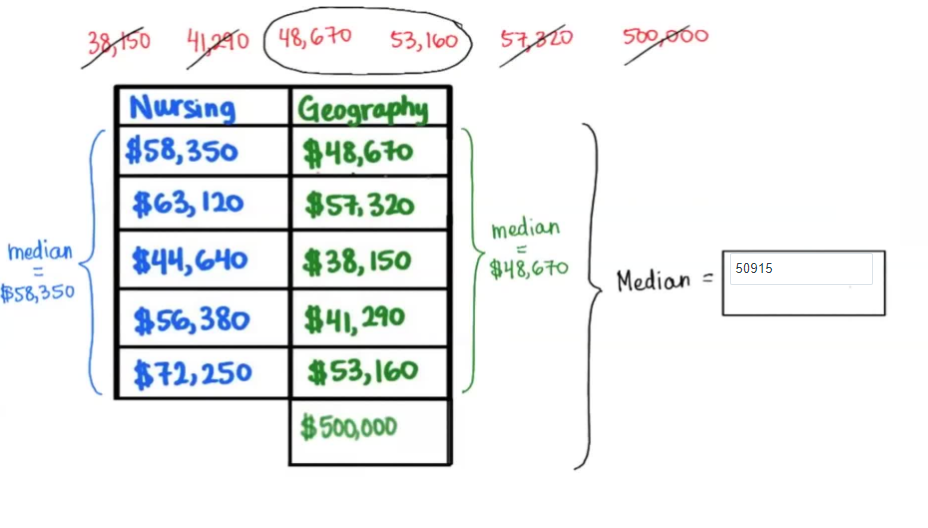 38,150 41,290 48,670 53,160 57,320 500,000
Nursing Geography
$58,350 $48,670
$63,120 $57,320
$44,640 $38,150
$56,380 $41,290
$72,250 $53,160
$500,000
median
=
$58,350
median
=
$48,670
Median = 50915